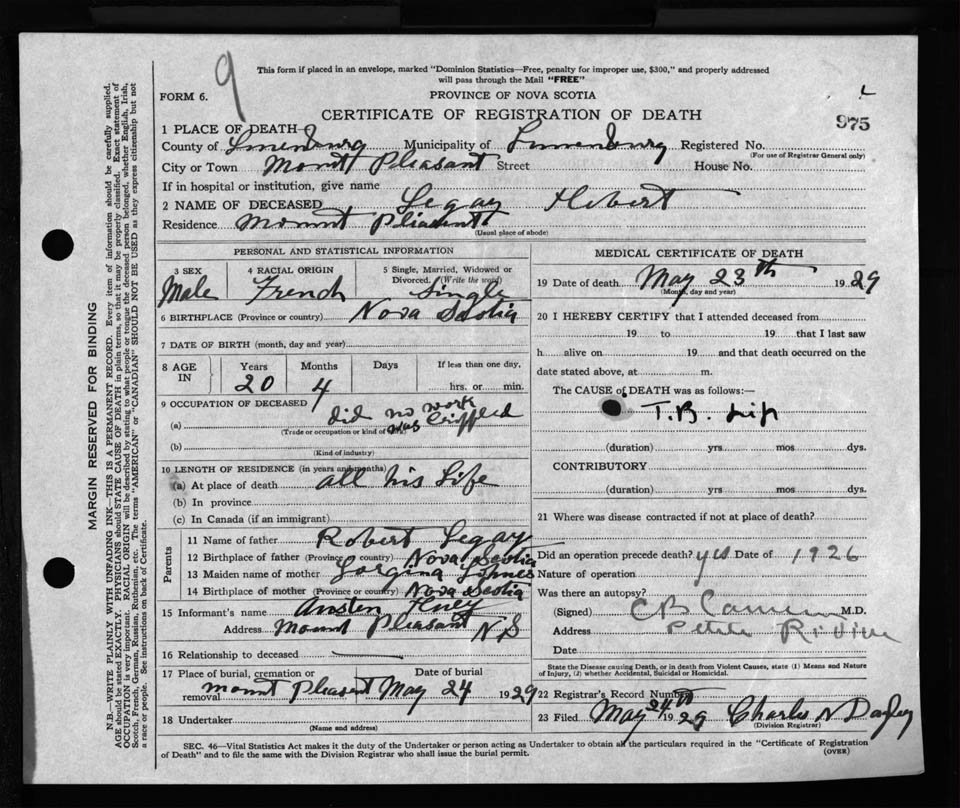 9
This form if placed in an envelope, marked "Dominion Statistics—Free, penalty for improper use, $300," and properly addressed
will pass through the Mail "FREE"
FORM 6.
PROVINCE OF NOVA SCOTIA
CERTIFICATE OF REGISTRATION OF DEATH
975
1 PLACE OF DEATH
County of Lunenburg Municipality of Lunenburg Registered No.
(For use of Registrar General only)
City or Town Mount Pleasant Street House No.
If in hospital or institution, give name
2 NAME OF DECEASED Legay Hibert
Residence Mount Pleasant
(Usual place of abode)
PERSONAL AND STATISTICAL INFORMATION
3 SEX 4 RACIAL ORIGIN 5 Single, Married, Widowed or
Divorced. (Write the word)
Male French Single
6 BIRTHPLACE (Province or country) Nova Scotia
7 DATE OF BIRTH (month, day and year)
8 AGE IN Years Months Days If less than one day,
20 4 hrs. or min.
9 OCCUPATION OF DECEASED
(a) did no work
was Criffled
(Trade or occupation or kind of work)
(b)
(Kind of industry)
10 LENGTH OF RESIDENCE (in years and months)
(a) At place of death all his Life
(b) In province
(c) In Canada (if an immigrant)
Parents
11 Name of father Robert Legay
12 Birthplace of father (Province or country) Nova Scotia
13 Maiden name of mother
14 Birthplace of mother (Province or country) Nova Scotia
15 Informant's name Austen
Address Mount Pleasant N S
16 Relationship to deceased
17 Place of burial, cremation or removal Date of burial
Mount Pleasant May 24 1929
18 Undertaker
(Name and address)
MEDICAL CERTIFICATE OF DEATH
19 Date of death May 23th 1929
(Month, day and year)
20 I HEREBY CERTIFY that I attended deceased from
19 to 19 that I last saw
h alive on 19 and that death occurred on the
date stated above, at m.
The CAUSE of DEATH was as follows:—
T.B. Hip
(duration) yrs. mos dys.
CONTRIBUTORY
(duration) yrs mos dys.
21 Where was disease contracted if not at place of death?
Did an operation precede death? yes Date of 1926
Nature of operation
Was there an autopsy?
(Signed) M.D.
Address Petite Riviere
Date
State the Disease causing Death, or in death from Violent Causes, state (1) Means and Nature
of Injury, (2) whether Accidental, Suicidal or Homicidal.
22 Registrar's Record Number
23 Filed May 24th 1929 Charles N
(Division Registrar)
SEC. 46—Vital Statistics Act makes it the duty of the Undertaker or person acting as Undertaker to obtain all the particulars required in the "Certificate of Registration
of Death" and to file the same with the Division Registrar who shall issue the burial permit.
(OVER)
MARGIN RESERVED FOR BINDING
N.B.—WRITE PLAINLY WITH UNFADING INK—THIS IS A PERMANENT RECORD. Every item of information should be carefully supplied.
AGE should be stated EXACTLY. PHYSICIANS should STATE CAUSE OF DEATH in plain terms, so that it may be properly classified. Exact statement of
OCCUPATION is very important. RACIAL ORIGIN will be described by stating to what people or tongue the deceased person belonged, whether English, Irish,
Scotch, French, German, Russian, Ruthenian, etc. The terms "AMERICAN" or "CANADIAN" SHOULD NOT BE USED as they express citizenship but not
a race or people. See instructions on back of Certificate.